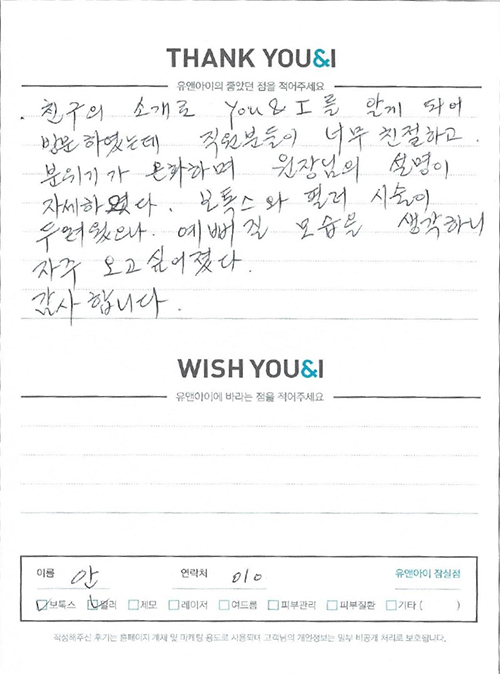 THANK YOU&I
유앤아이의 좋았던 점을 적어주세요
친구의 소개로 You & I를 알게 되어
방문하였는데 직원분들이 너무 친절하고.
분위기가 온화하며 원장님의 설명이
자세하였다. 보톡스와 필러 시술이
두려웠으나. 예뻐질 모습을 생각하니
자주 오고싶어졌다.
감사합니다.
WISH YOU&I
유앤아이에 바라는 점을 적어주세요
이름 안 연락처 010 유앤아이 잠실점
보톡스 필러 제모 레이저 여드름 피부관리 피부질환 기타 ( )
작성해주신 후기는 홈페이지 게재 및 마케팅 용도로 사용되며 고객님의 개인정보는 일부 비공개 처리로 보호됩니다.